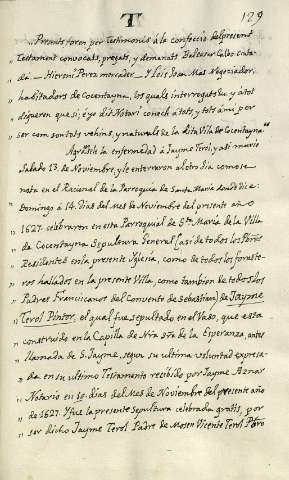 T
129
„ Perants foren per Testimonis à la confecció del present
„ Testament convocats, pregats, y demanats Baltasar Calbo
„ da - Hieroni Perez mercader - Y Lois Joan Mas Negociador,
„ habitadors de Cocentayna, los quals interrogats eu y à tots
„ digueren que si; e yo dit Notari conech à tots, y tots à mi por
„ ser com son tots vehins, y naturals de la dita Vila de Cocentayna"
Agravòsele la enfermedad à Jayme Terol, y asi muriò
Sabado 13 de Noviembre, y le enterraron al otro dia como se
nota en el Racional de la Parroquia de Santa Maria donde dice:
„ Domingo à 14 dias del mes de Noviembre del present año
„ 1627 celebraron en esta Parroquial de Sta. Maria de la Villa
„ de Cocentayna Sepultura General (asi de todos los
„ Residentes en la presente Iglesia, como de todos los foraste-
„ ros hallados en la presente Villa, como tambien de todos los
„ Padres Franciscanos del Convento de Sebastian) de Jayme
„ Terol Pintor, el qual fue sepultado en el Vaso, que esta
„ construido en la Capilla de Nra. Sra. de la Esperanza, antes
„ llamada de S. Jayme, segun su ultima voluntad expresa-
„ da en su ultimo Testamento recibido por Jayme Aznar
„ Notario en dias del mes de Noviembre del presente año
„ de 1627. Y fue la presente sepultura celebrada gratis, por
„ ser dicho Jayme Terol Padre de Mosen Vicente Terol Pbro